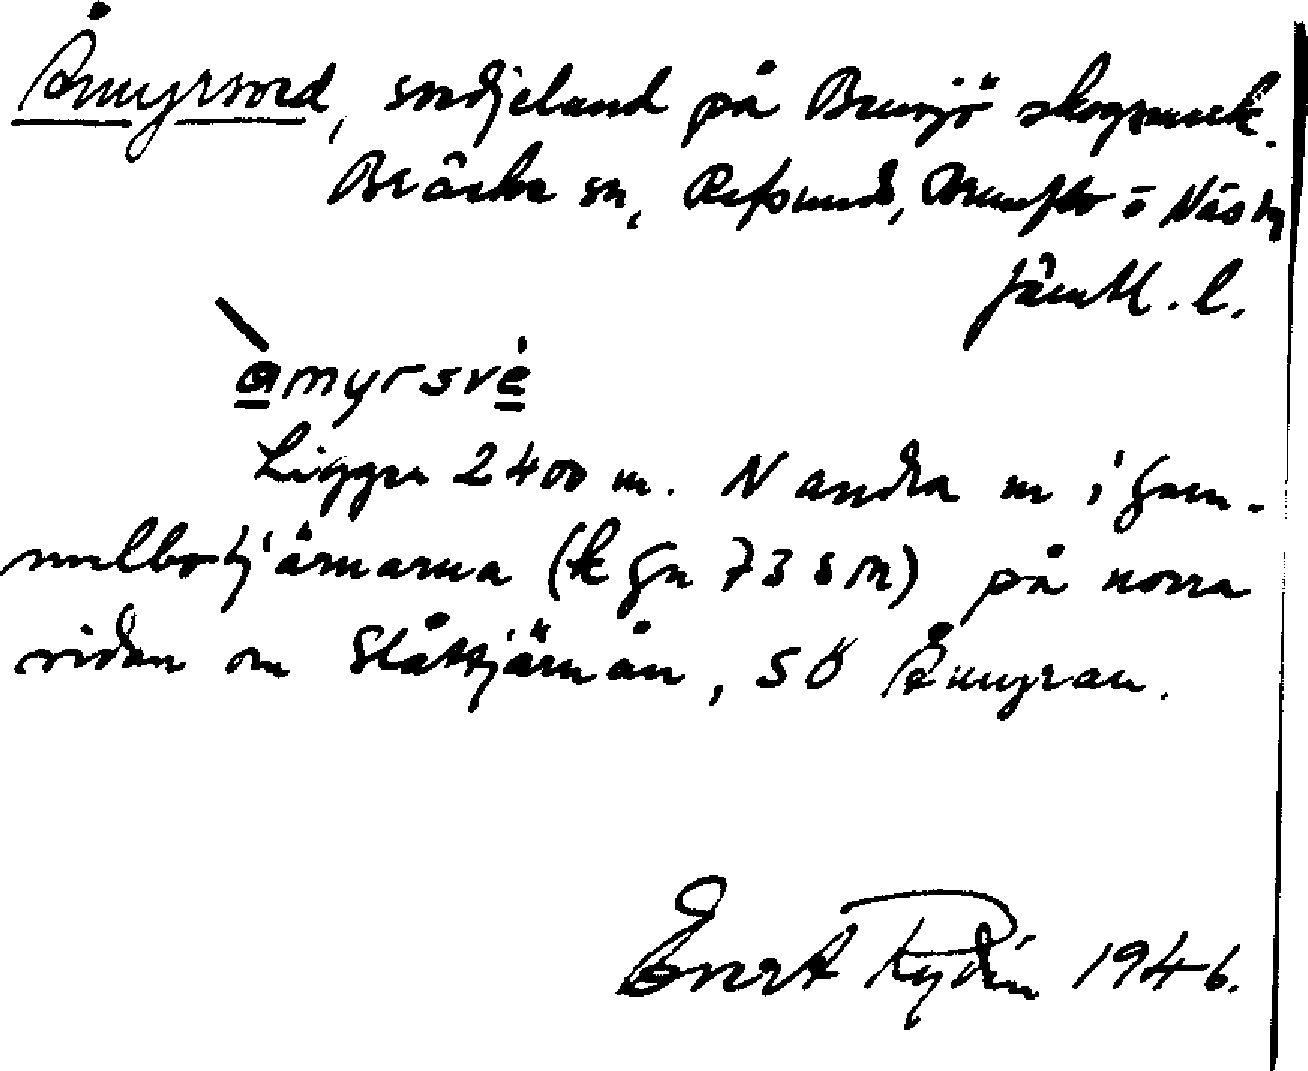 Åmyrsved, svedjeland på Bensjö skogsmark.
Bräcke sn, Refsunds, Brunflo o Näs tg
Jämtl. l.
åmyrsvè
Ligger 2400 m. N andra m i Gam-
melbotjärnarna (k Gn 73 S M) på norra
sidan om Slåttjärnån, SÖ Åmyran.
Evert Rydén 1946.